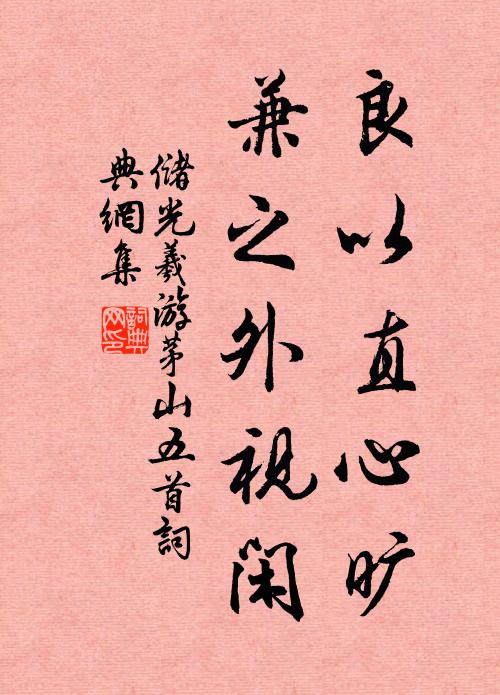 良以直心旷
兼之外视闲
储光羲游茅山五首词
典网集
词典网印